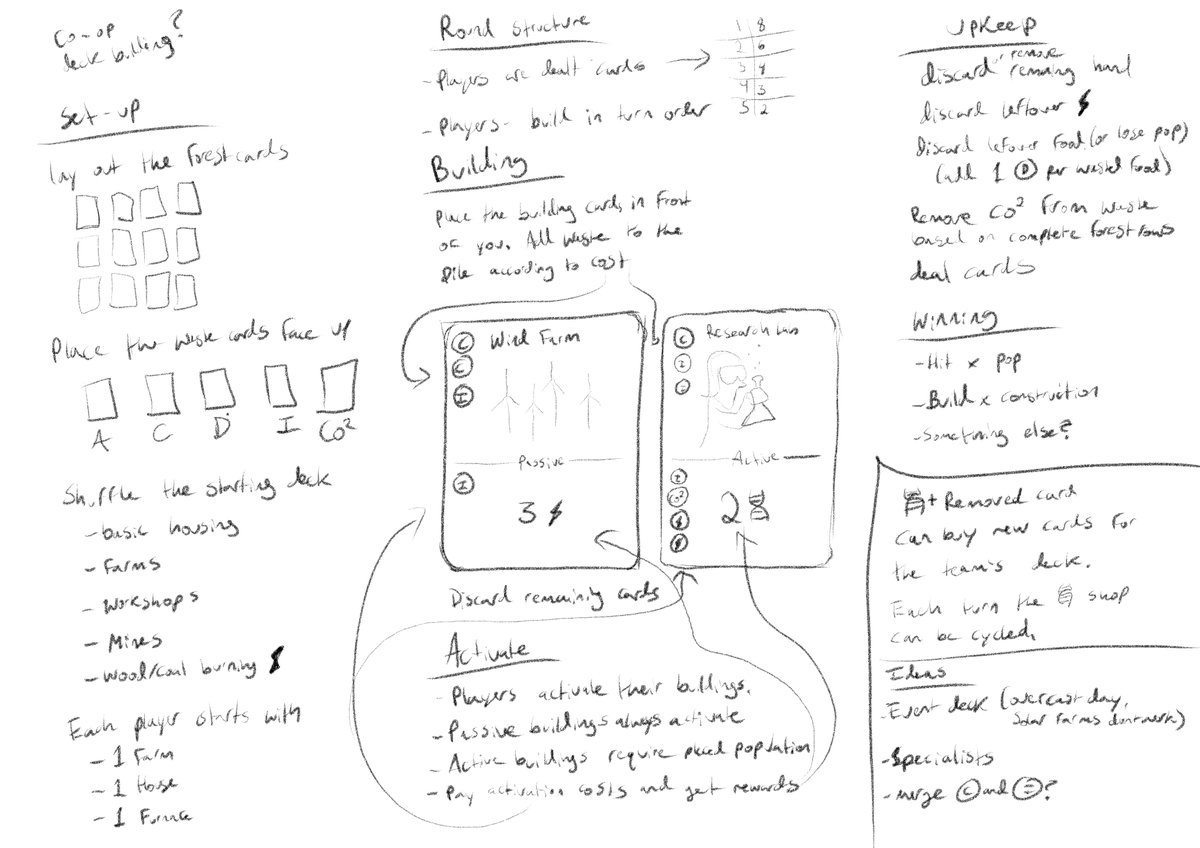 Co-op
deck building?
Set-up
lay out the forest cards
Place the waste cards face up
A C D I CO²
Shuffle the starting deck
- basic housing
- Farms
- Workshops
- Mines
- Wood/coal burning
Each player starts with
- 1 Farm
- 1 House
- 1 Furnace
Round structure
- Players are dealt cards
- Players build in turn order
1 8
2 6
3 4
4 3
5 2
Building
Place the building cards in front
of you. Add waste to the
pile according to cost
C
C
I
Wind Farm
Passive
I
3
C
I
Research Lab
Active
I
CO²
2
Discard remaining cards
Activate
- Players activate their buildings.
- Passive buildings always activate
- Active buildings require placed population
- Pay activation costs and get rewards
Upkeep
discard or remove remaining hand
discard leftover
Discard leftover food (or lose pop)
(add 1 D per wasted food)
Remove CO² from waste
based on complete forest rows
deal cards
Winning
- Hit x pop
- Build x construction
- Something else?
+ Removed card
can buy new cards for
the team's deck.
Each turn the shop
can be cycled.
Ideas
- Event deck (overcast day,
solar farms dont work)
- Specialists
- merge C and ?